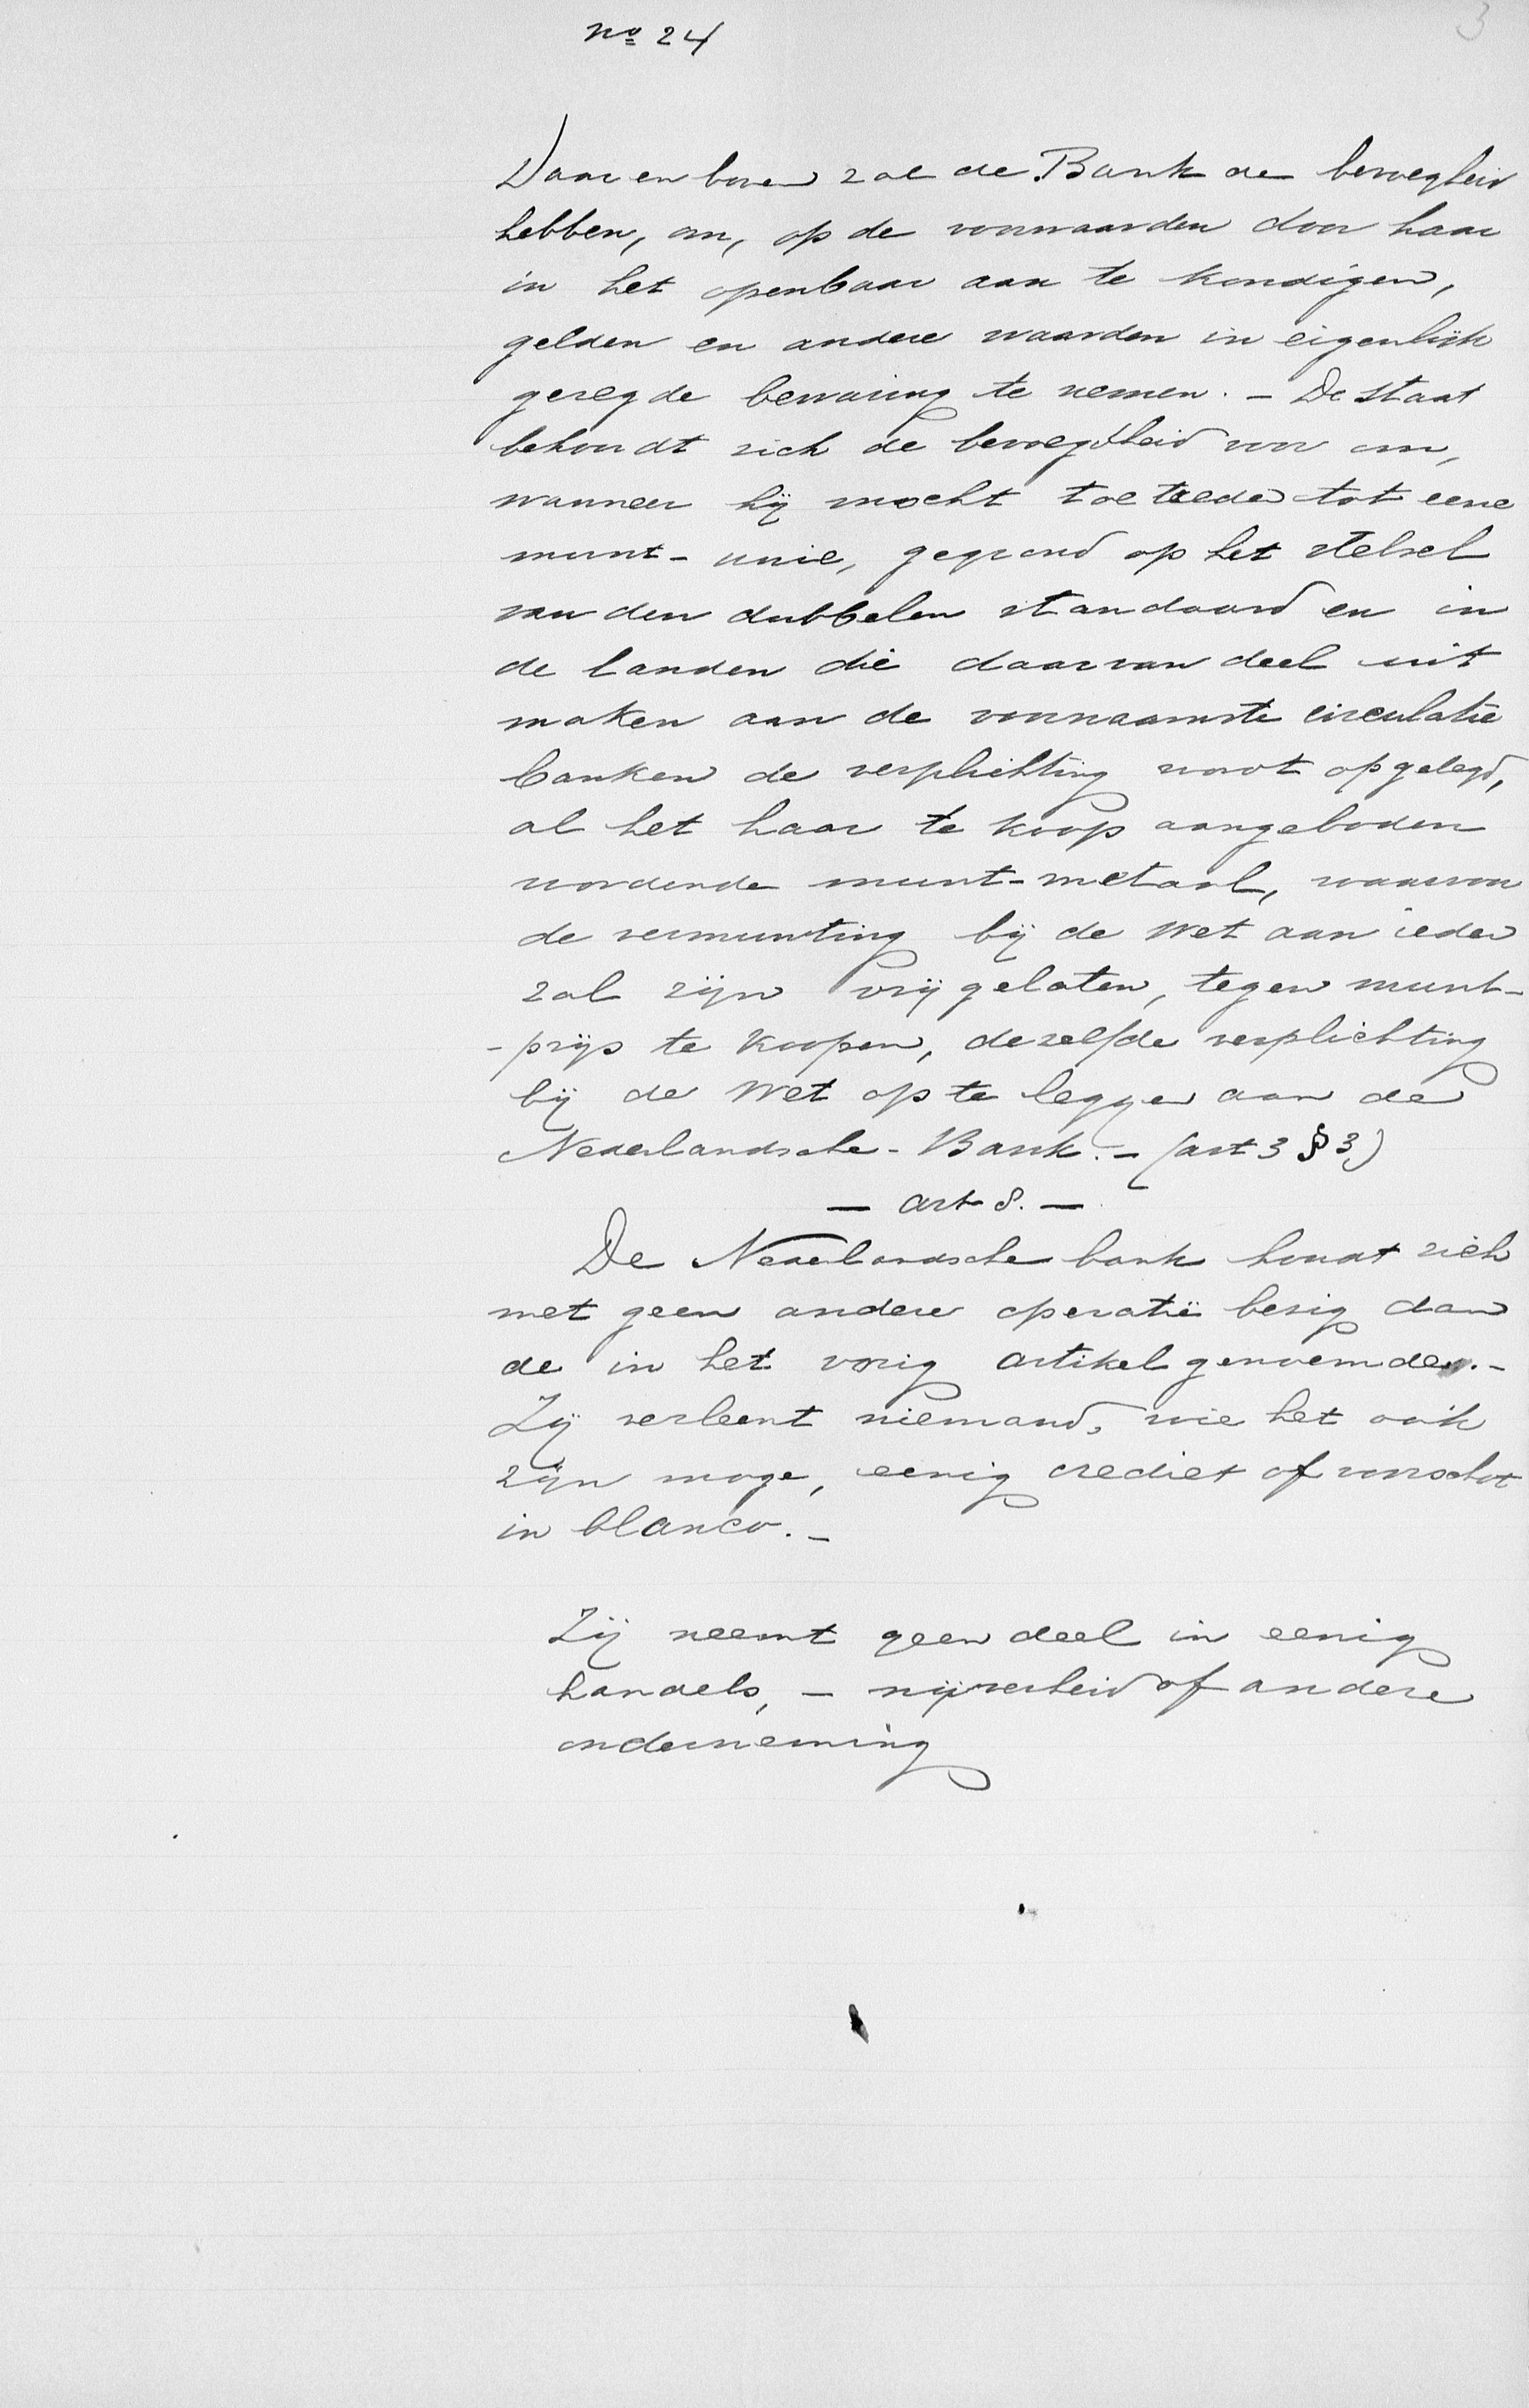 no 24
3
Daarenboven zal de Bank de bevoegheid
hebben, om, op de voorwaarden door haar
in het openbaar aan te kondigen,
gelden en andere waarden in eigenlijk
gezegde bewaring te nemen. - De Staat
behoudt zich de bevoegdheid voor om,
wanneer hij mocht toe treden tot eene
munt- unie, gegrond op het stelsel
van den dubbelen standaard en in
de landen die daarvan deel uit
maken aan de voornaamste circulatie
banken de verplichting wordt opgelegd,
al het haar te koop aangeboden
wordende munt-metaal, waarvan
de vermunting bij de Wet aan ieder
zal zijn vrijgelaten, tegen munt-
-prijs te koopen, dezelfde verplichting
bij de Wet op te leggen aan de
Nederlandsche-Bank. - (art 3 § 3)
- art 8. -
De Nederlandsche bank houdt zich
met geen andere operatiën bezig dan
de in het vorig artikel genoemde. -
Zij verleent niemand, wie het ook
zijn moge, eenig crediet of voorschot
in blanco. -
Zij neemt geen deel in eenig
handels, - nijverheid of andere
onderneming